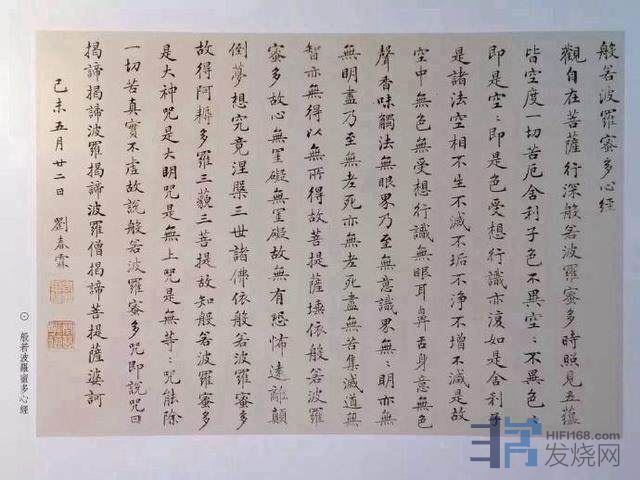 般若波羅蜜多心經
觀自在菩薩行深般若波羅蜜多時照見五蘊
皆空度一切苦厄舍利子色不異空〻不異色〻
即是空〻即是色受想行識亦復如是舍利子
是諸法空相不生不滅不垢不淨不增不減是故
空中無色無受想行識無眼耳鼻舌身意無色
聲香味觸法無眼界乃至無意識界無〻明亦無
無明盡乃至無老死亦無老死盡無苦集滅道無
智亦無得以無所得故菩提薩埵依般若波羅
蜜多故心無罣礙無罣礙故無有恐怖遠離顛
倒夢想究竟涅槃三世諸佛依般若波羅蜜多
故得阿耨多羅三藐三菩提故知般若波羅蜜多
是大神咒是大明咒是無上咒是無等〻咒能除
一切苦真實不虛故說般若波羅蜜多咒即說咒曰
揭諦揭諦波羅揭諦波羅僧揭諦菩提薩婆訶
己未五月廿二日 劉春霖
⊙ 般若波羅蜜多心經
HIFI168.com
发烧网